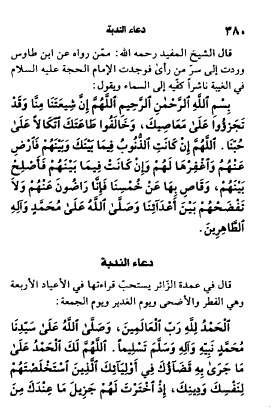 ٣٨٠ دعاء الندبة
قال الشيخ المفيد رحمه الله: ممّن رواه عن ابن طاوس
وردت إلى سرّ من رأىٰ فوجدت الإمام الحجة عليه السلام
في الغيبة ناشراً كفّيه إلى السماء ويقول:
بِسْمِ اللَّهِ الرَّحْمٰنِ الرَّحِيمِ اللَّهُمَّ إِنَّ شِيعَتَنَا مِنَّا وَقَدْ
تَجَرَّؤُوا عَلَىٰ مَعَاصِيكَ، وَخَالَفُوا طَاعَتَكَ اتِّكَالاً عَلَىٰ
حُبِّنَا. اللَّهُمَّ إِنْ كَانَتِ الذُّنُوبُ فِيمَا بَيْنَكَ وَبَيْنَهُمْ فَأَرْضِ
عَنْهُمْ وَاغْفِرْهَا لَهُمْ وَإِنْ كَانَتْ فِيمَا بَيْنَهُمْ فَأَصْلِحْ
بَيْنَهُمْ، وَقَاصِ بِهَا عَنْ خُمْسِنَا فَإِنَّا رَاضُونَ عَنْهُمْ وَلَا
تَفْضَحْهُمْ بَيْنَ أَعْدَائِنَا وَصَلَّىٰ اللَّهُ عَلَىٰ مُحَمَّدٍ وَآلِهِ
الطَّاهِرِينَ.
دعاء الندبة
قال في عمدة الزّائر يستحبّ قراءتها في الأعياد الأربعة
وهي الفطر والأضحى ويوم الغدير ويوم الجمعة:
الْحَمْدُ لِلَّهِ رَبِّ الْعَالَمِينَ، وَصَلَّىٰ اللَّهُ عَلَىٰ سَيِّدِنَا
مُحَمَّدٍ نَبِيِّهِ وَآلِهِ وَسَلَّمَ تَسْلِيماً. اللَّهُمَّ لَكَ الْحَمْدُ عَلَىٰ
مَا جَرَىٰ بِهِ قَضَاؤُكَ فِي أَوْلِيَائِكَ الَّذِينَ اسْتَخْلَصْتَهُمْ
لِنَفْسِكَ وَدِينِكَ، إِذِ اخْتَرْتَ لَهُمْ جَزِيلَ مَا عِنْدَكَ مِنَ